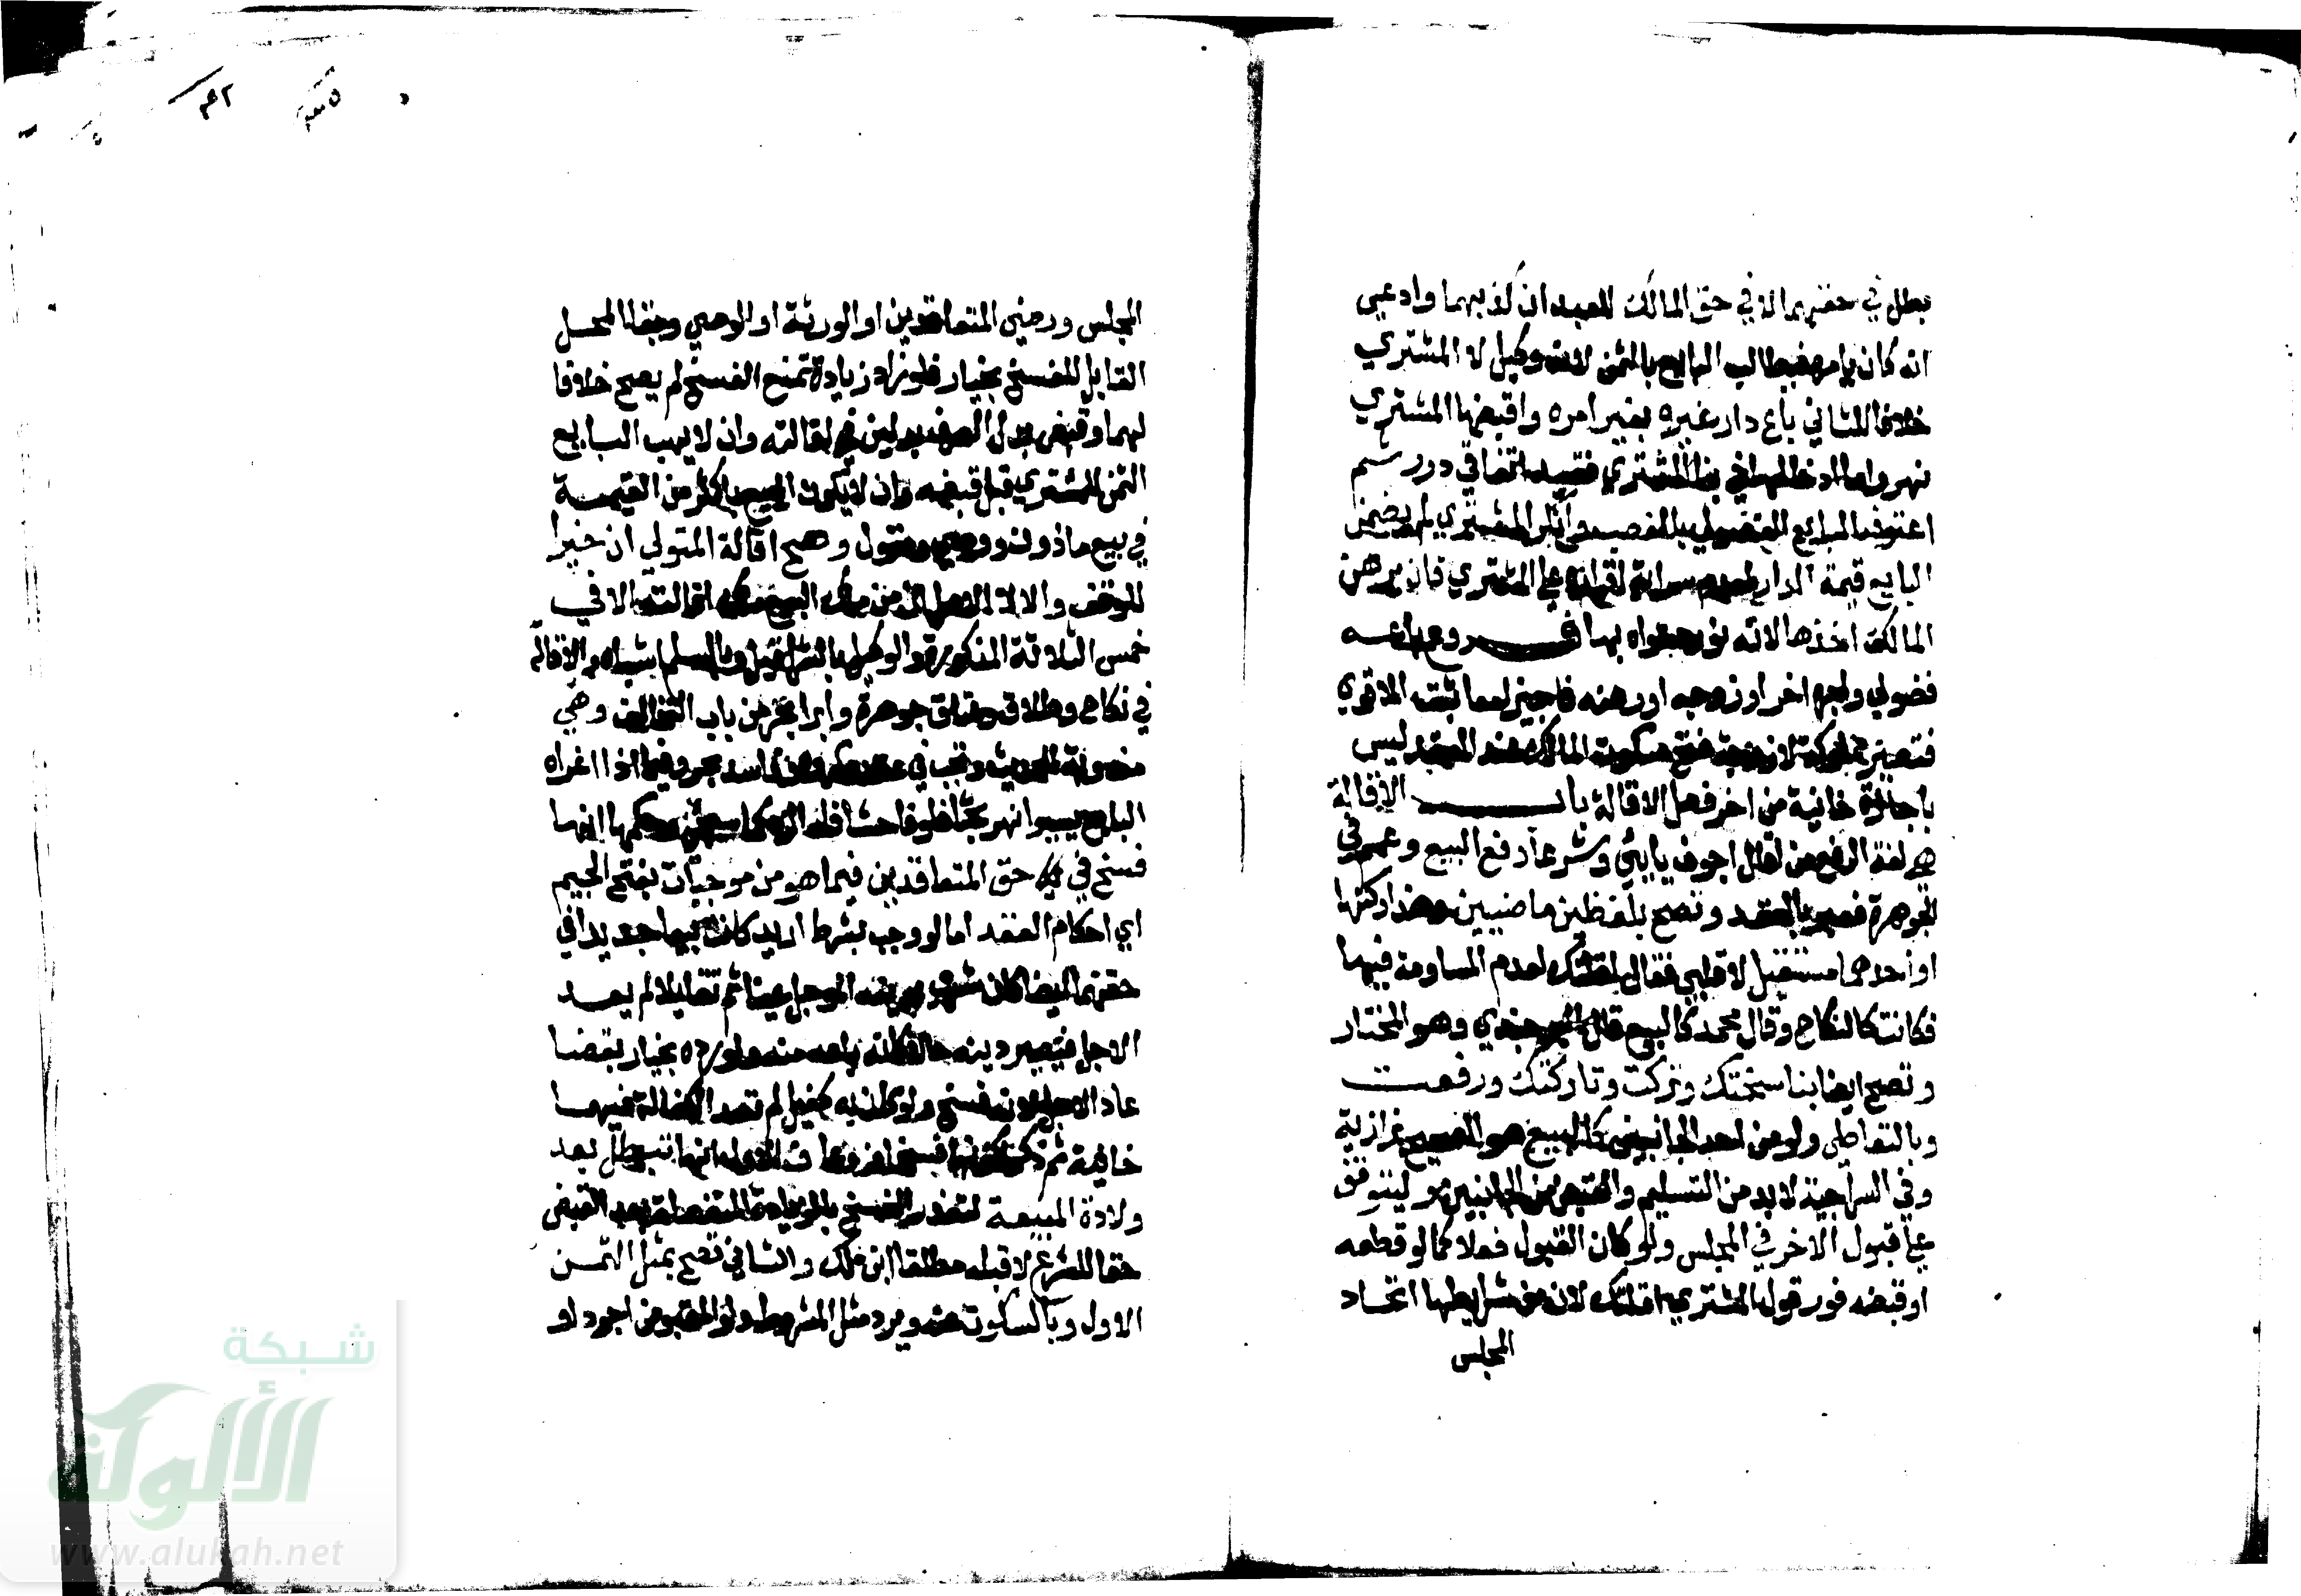 بطل في حقهما لا في حق المالك للعبد ان كذبهما وادعى
انه كان بامره فيطالب البايع بالثمن لانه وكيل لا المشتري
خلافا للثاني باع دار غيره بغير امره واقبضها المشتري
نهر واما ادخالها في بنا المشتري فقيد اتفاقي درر ثم
اعترف البايع الفضولي بالغصب وانكر المشتري لم يضمن
البايع قيمة الدار لعدم سراية اقراره على المشتري فان برهن
المالك اخذها لانه نور دعواه بها فروع باعه
فضولي واجر اخر او زوجه او رهنه فاجيز معا ثبت الاقوى
فتصير مملوكة لا زوجة فتح سكوت المالك عند العقد ليس
باجازة خانية من اخر فصل الاقالة باب الاقالة
هي لغة الرفع من اقال اجوف يايي وشرعا رفع البيع وعمم في
الجوهرة فعبر بالعقد وتصح بلفظين ماضيين وهذا ركنها
او احدهما مستقبل كاقلني فقال اقلتك لعدم المساومة فيها
فكانت كالنكاح وقال محمد كالبيع قال البرجندي وهو المختار
وتصح ايضا بفاسختك وتركت وتاركتك ورفعت
وبالتعاطي ولو من احد الجانبين كالبيع هو الصحيح بزازية
وفي السراجية لا بد من التسليم والقبض من الجانبين وتتوقف
على قبول الاخر في المجلس ولو كان القبول فعلا كما لو قطعه
او قبضه فور قول المشتري اقلتك لان من شرايطها اتحاد
المجلس
المجلس ورضى المتعاقدين او الورثة او الوصي وبقا المحل
القابل للفسخ بخيار فلو زاد زيادة تمنع الفسخ لم يصح خلافا
لهما وقبض بدل الصرف في اقالته وان لا يهب البايع
الثمن للمشتري قبل قبضه وان لا يكون البيع باكثر من القيمة
في بيع ماذون ووصي ومتول وصح اقالة المتولي ان خيرا
للوقف والا لا الاصل ان من ملك البيع ملك اقالته الا في
خمس الثلاثة المذكورة والوكيل بالشرا قيل وبالسلم اشباه والاقالة
في نكاح وطلاق وعتاق جوهرة وابرا بحر من باب التحالف وهي
مندوبة للحديث وتجب في عقد مكروه وفاسد بحر وفيما اذا غراه
البايع يسيرا نهر بحثا فلو فاحشا فله الرد كما سيجي وحكمها انها
فسخ في حق المتعاقدين فيما هو من موجبات بفتح الجيم
اي احكام العقد اما لو وجب بشرط زايد كانت بيعا جديدا في
حقهما ايضا كان شرى بدينه الموجل عينا ثم تقايلا لم يعد
الاجل فيصير دينه حالا كانه باعه منه ولو رده بخيار بقضا
عاد الاجل لانه فسخ ولو كان به كفيل لم تعد الكفالة فيهما
خانية ثم ذكر لكونها فسخا فروعا فـالاول انها تبطل بعد
ولادة المبيعة لتعذر الفسخ بالزيادة المنفصلة بعد القبض
حقا للشرع لا قبله مطلقا ابن ملك والثاني تصح بمثل الثمن
الاول وبالسكوت عنه ويرد مثل المشروط ولو المقبوض اجود او
شبكة
الألوكة
www.alukah.net